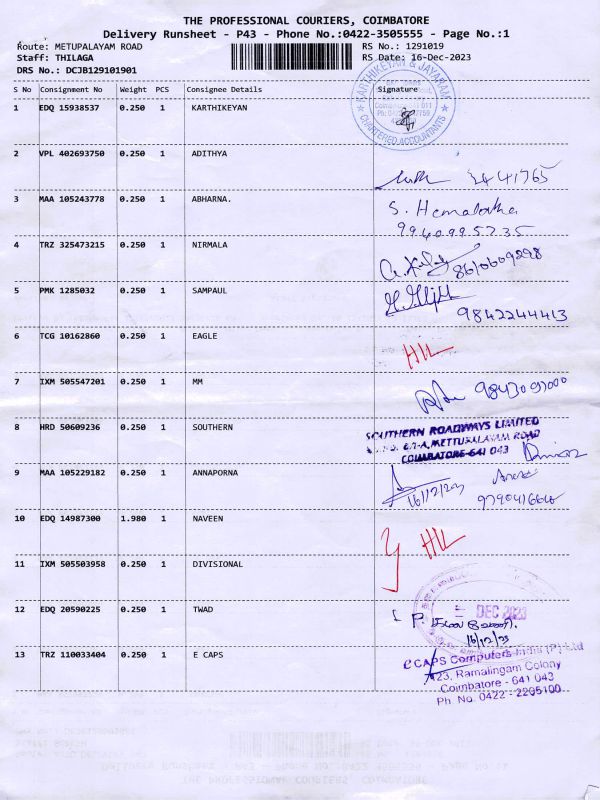 THE PROFESSIONAL COURIERS, COIMBATORE
Delivery Runsheet - P43 - Phone No.:0422-3505555 - Page No.:1
Route: METUPALAYAM ROAD RS No.: 1291019
Staff: THILAGA RS Date: 16-Dec-2023
DRS No.: DCJB129101901
S No Consignment No Weight PCS Consignee Details Signature
KARTHIKEYAN & JAYARAM
CHARTERED ACCOUNTANTS
1 EDQ 15938537 0.250 1 KARTHIKEYAN
2 VPL 402693750 0.250 1 ADITHYA
2441765
3 MAA 105243778 0.250 1 ABHARNA.
S. Hemalatha
9940995235
4 TRZ 325473215 0.250 1 NIRMALA
8610609898
5 PMK 1285032 0.250 1 SAMPAUL
9842244413
6 TCG 10162860 0.250 1 EAGLE
7 IXM 505547201 0.250 1 MM
8 HRD 50609236 0.250 1 SOUTHERN
SOUTHERN ROADWAYS LIMITED
METTUPALAYAM ROAD
COIMBATORE-641 043
9 MAA 105229182 0.250 1 ANNAPORNA
16/12/23
10 EDQ 14987300 1.980 1 NAVEEN
11 IXM 505503958 0.250 1 DIVISIONAL
12 EDQ 20590225 0.250 1 TWAD
DEC 2023
16/12/23
13 TRZ 110033404 0.250 1 E CAPS
eCAPS Computers India (P) Ltd
#23, Ramalingam Colony
Coimbatore - 641 043
Ph No. 0422 - 2205100